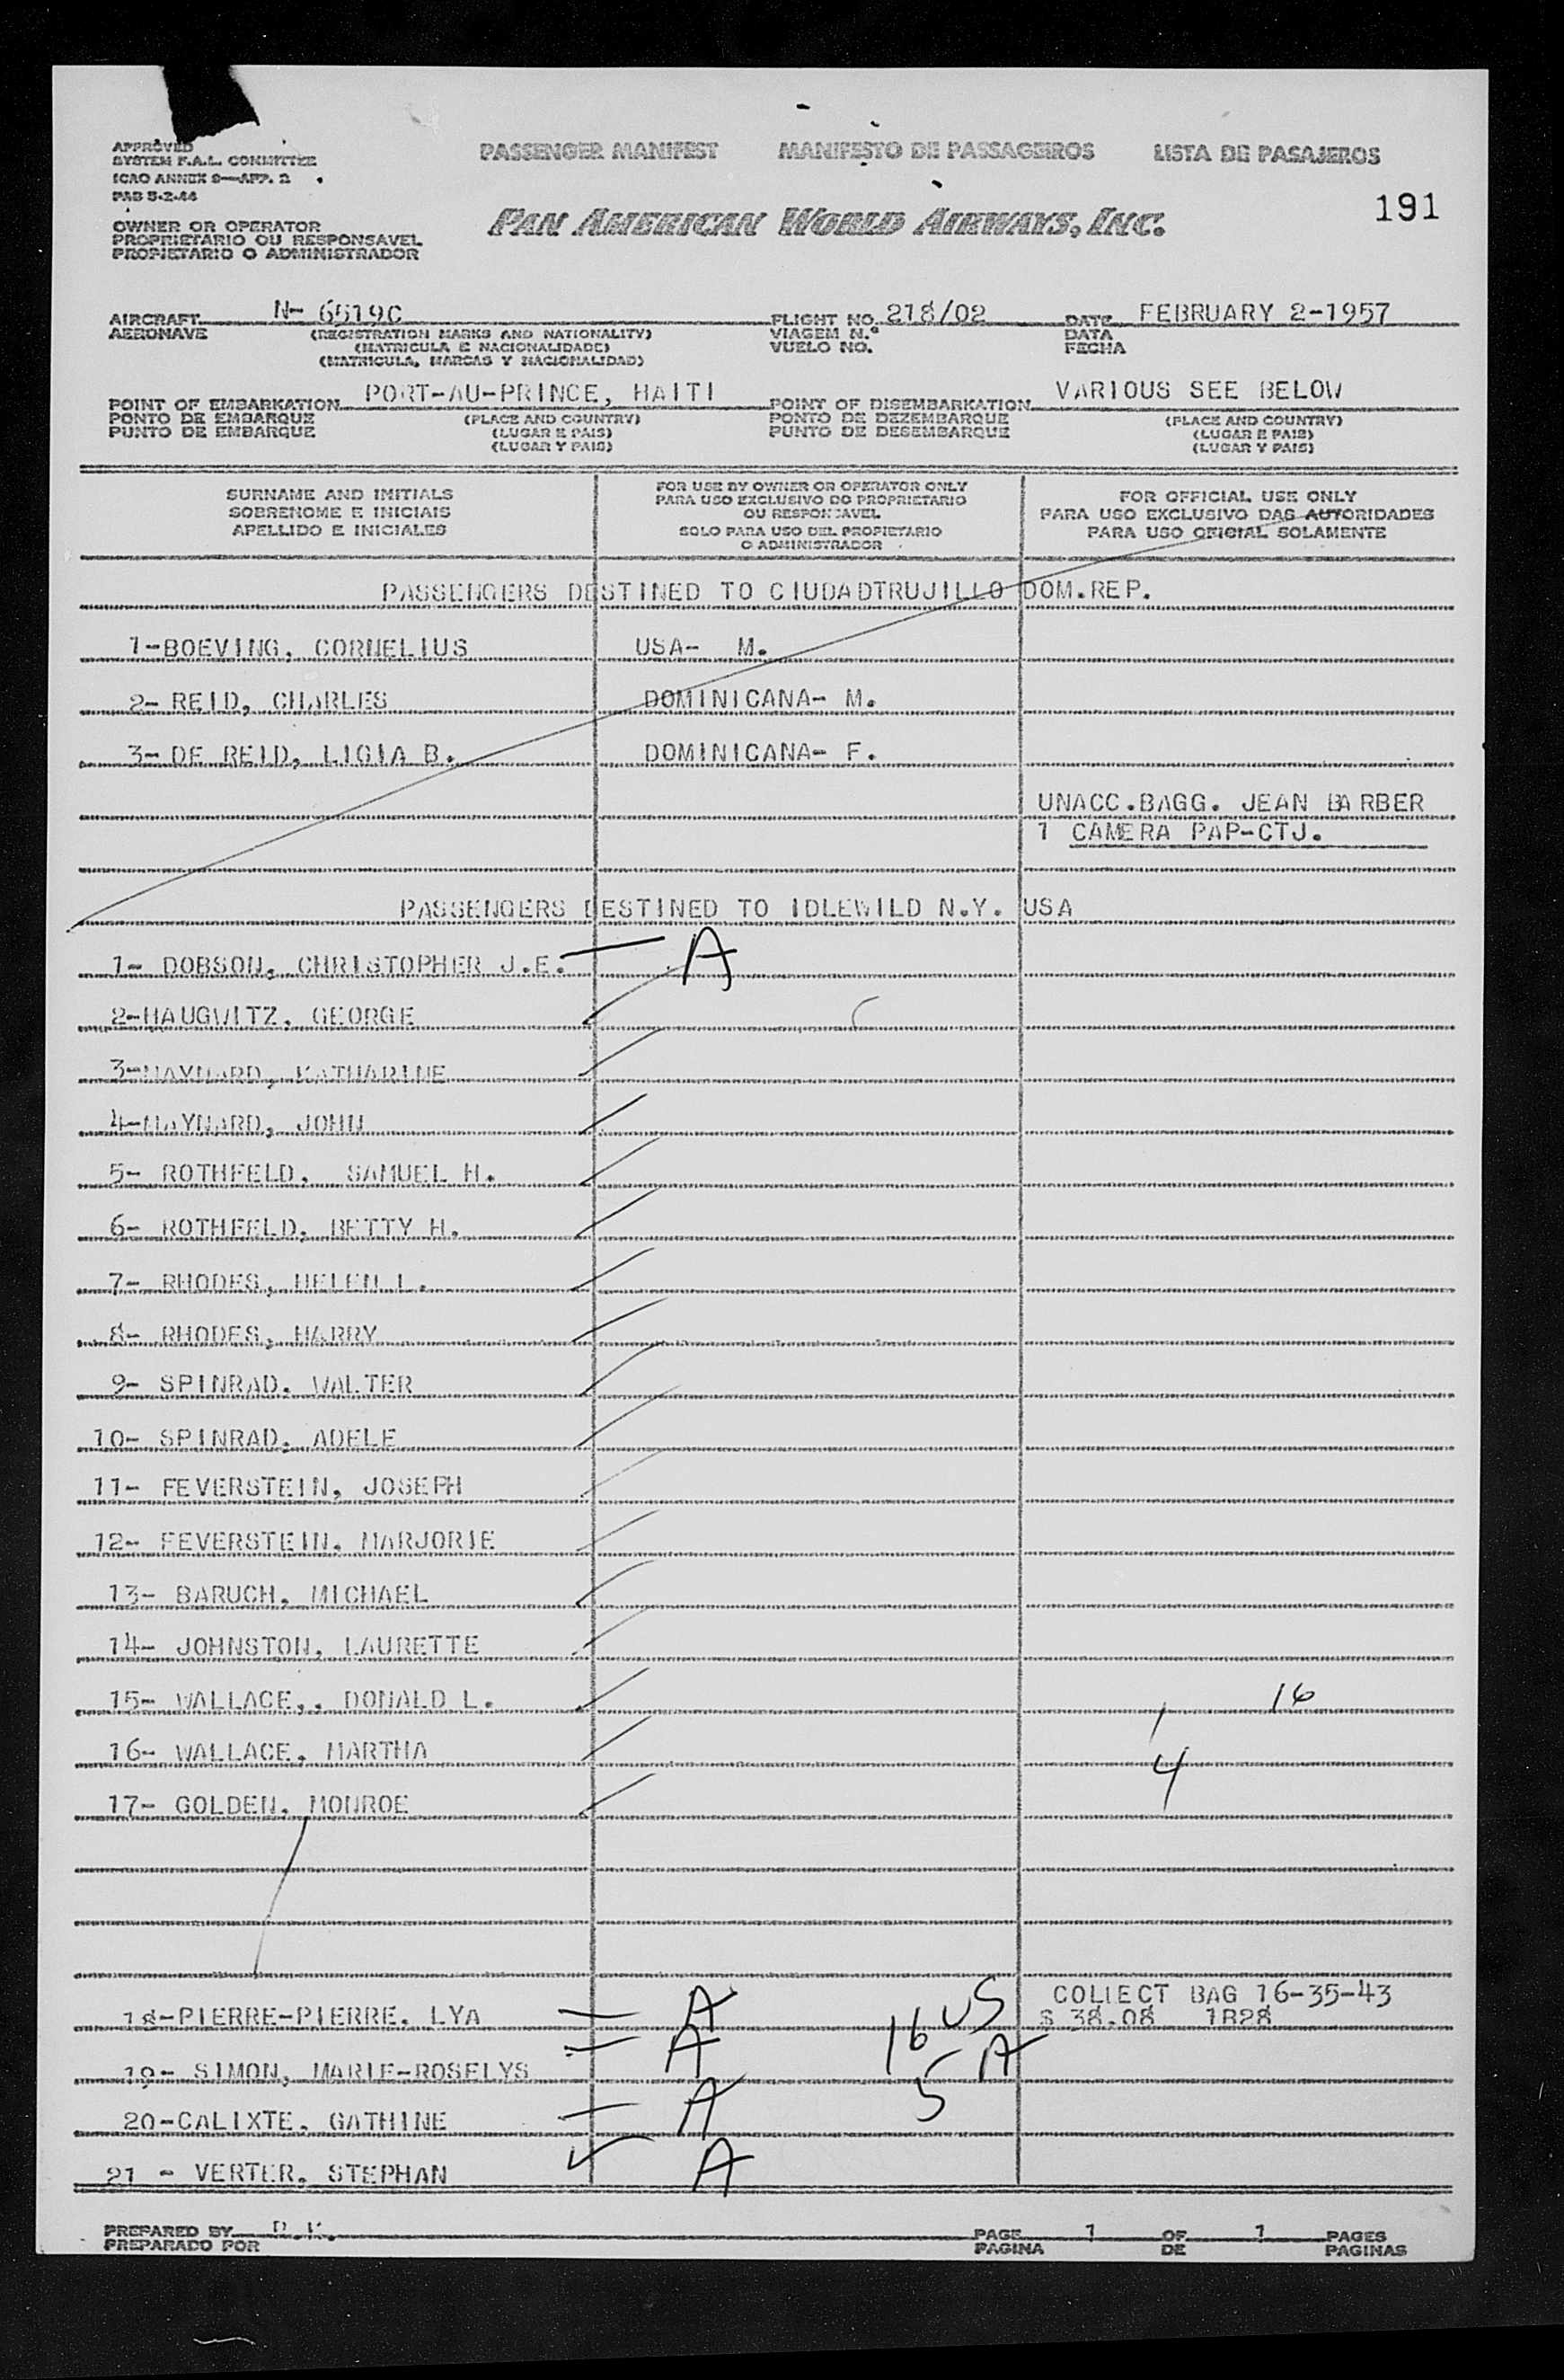 APPROVED
SYSTEM F.A.L. COMMITTEE
ICAO ANNEX 9—APP. 2
PAB 5-2-44
PASSENGER MANIFEST MANIFESTO DE PASSAGEIROS LISTA DE PASAJEROS
191
PAN AMERICAN WORLD AIRWAYS, INC.
OWNER OR OPERATOR
PROPRIETARIO OU RESPONSAVEL
PROPIETARIO O ADMINISTRADOR
AIRCRAFT N- 6519C FLIGHT NO. 218/02 DATE FEBRUARY 2-1957
AERONAVE (REGISTRATION MARKS AND NATIONALITY) VIAGEM N.º DATA
(MATRICULA E NACIONALIDADE) VUELO NO. FECHA
(MATRICULA, MARCAS Y NACIONALIDAD)
POINT OF EMBARKATION PORT-AU-PRINCE, HAITI POINT OF DISEMBARKATION VARIOUS SEE BELOW
PONTO DE EMBARQUE (PLACE AND COUNTRY) PONTO DE DEZEMBARQUE (PLACE AND COUNTRY)
PUNTO DE EMBARQUE (LUGAR E PAIS) PUNTO DE DESEMBARQUE (LUGAR E PAIS)
(LUGAR Y PAIS) (LUGAR Y PAIS)
SURNAME AND INITIALS
SOBRENOME E INICIAIS
APELLIDO E INICIALES
FOR USE BY OWNER OR OPERATOR ONLY
PARA USO EXCLUSIVO DO PROPRIETARIO
OU RESPONSAVEL
SOLO PARA USO DEL PROPIETARIO
O ADMINISTRADOR
FOR OFFICIAL USE ONLY
PARA USO EXCLUSIVO DAS AUTORIDADES
PARA USO OFICIAL SOLAMENTE
PASSENGERS DESTINED TO CIUDADTRUJILLO DOM.REP.
1-BOEVING, CORNELIUS USA- M.
2- REID, CHARLES DOMINICANA- M.
3- DE REID, LIGIA B. DOMINICANA- F.
UNACC.BAGG. JEAN BARBER
1 CAMERA PAP-CTJ.
PASSENGERS DESTINED TO IDLEWILD N.Y. USA
1- DOBSON, CHRISTOPHER J.E. — A
2-HAUGWITZ, GEORGE
3-MAYNARD, KATHARINE
4-MAYNARD, JOHN
5- ROTHFELD, SAMUEL H.
6- ROTHFELD, BETTY H.
7- RHODES, HELEN L.
8- RHODES, HARRY
9- SPINRAD, WALTER
10- SPINRAD, ADELE
11- FEVERSTEIN, JOSEPH
12- FEVERSTEIN, MARJORIE
13- BARUCH, MICHAEL
14- JOHNSTON, LAURETTE
15- WALLACE,, DONALD L. 16
16- WALLACE, MARTHA 4
17- GOLDEN, MONROE
COLLECT BAG 16-35-43
18-PIERRE-PIERRE, LYA A 16 US $ 38.08 1828
19- SIMON, MARIE-ROSELYS A 5 A
20-CALIXTE, GATHINE A
21 - VERTER, STEPHAN A
PREPARED BY PAGE 1 OF 1 PAGES
PREPARADO POR PAGINA DE PAGINAS